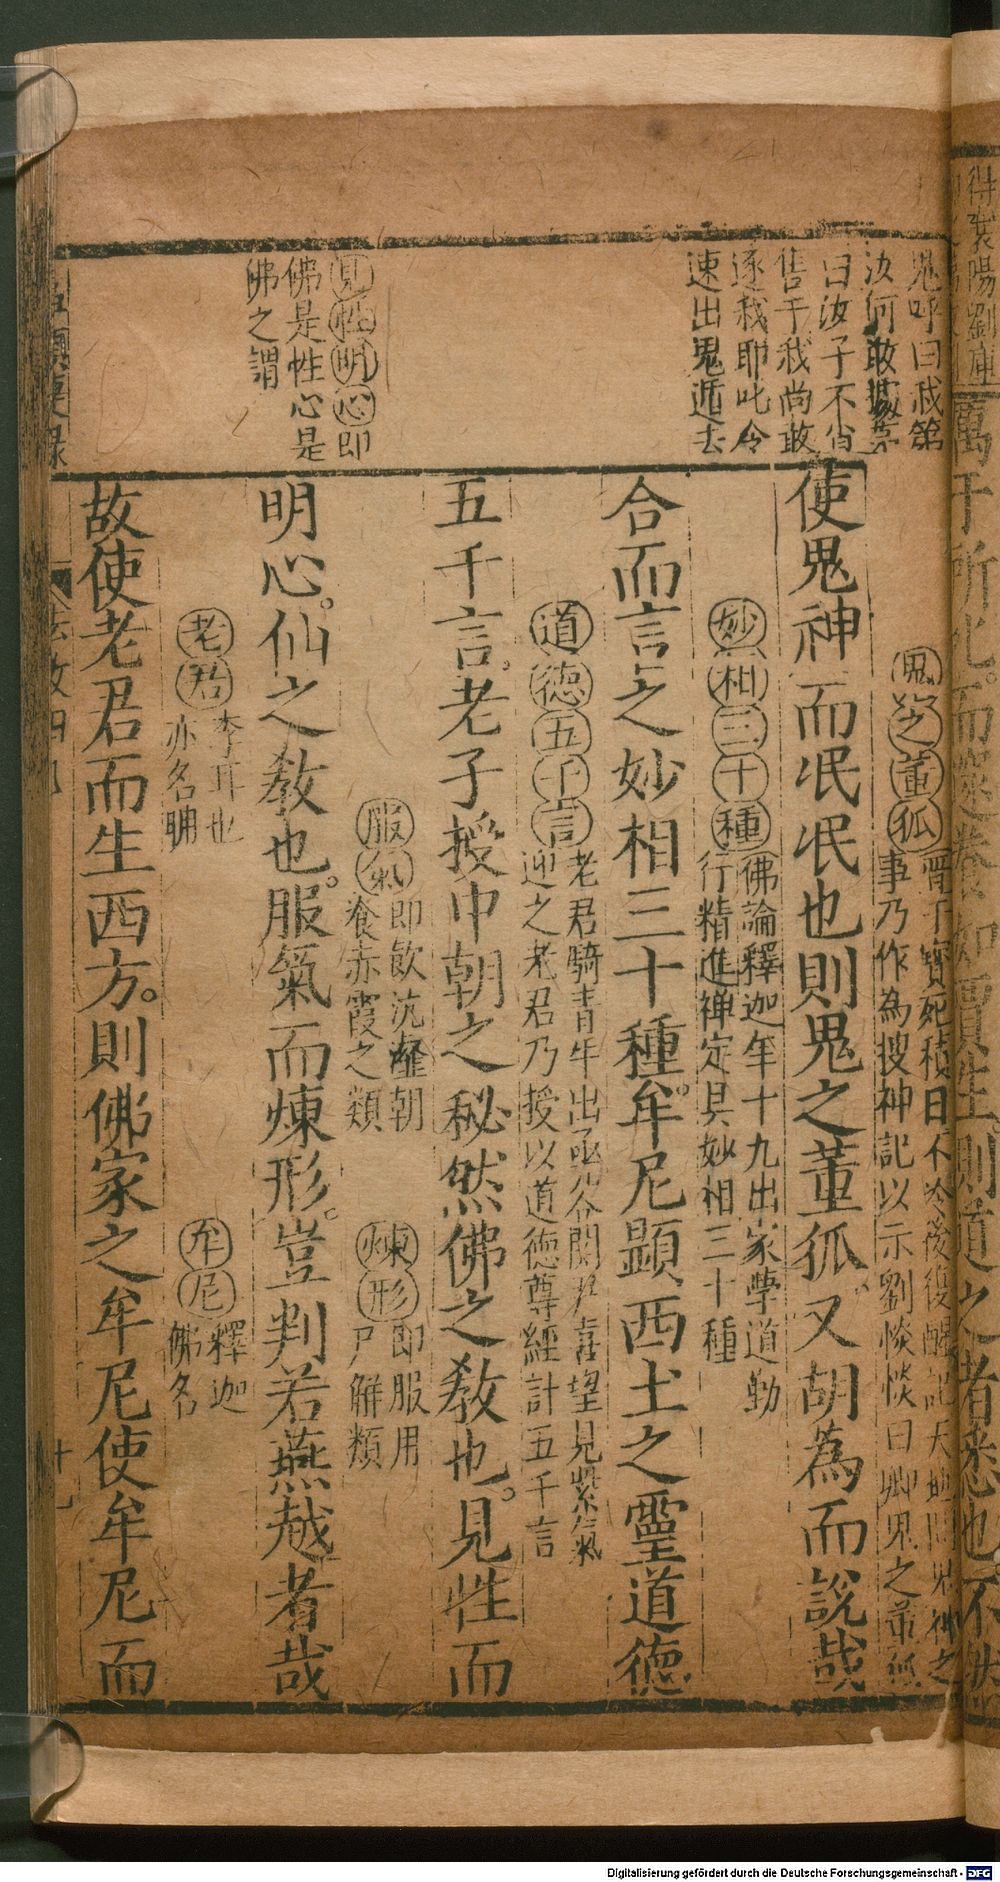 鬼呼曰我第
汝何敢據
曰汝子不肖
售于我尚敢
逐我耶叱令
速出鬼遁去
見性明心即
佛是性心是
佛之謂
鬼之董狐
晉干寶死積日不冷後復醒說天地間鬼神之
事乃作為搜神記以示劉惔惔曰卿鬼之董狐
使鬼神而冺冺也則鬼之董狐又胡為而說哉
妙相三十種
佛論釋迦年十九出家學道勤
行精進禅定具妙相三十種
合而言之妙相三十種牟尼顯西土之靈道德
道德五千言
老君騎青牛出函谷関尹喜望見紫氣
迎之老君乃授以道德尊經計五千言
五千言老子授中朝之秘然佛之教也見性而
服氣
即飲沆瀣朝
飡赤霞之類
煉形
即服用
尸解類
明心仙之教也服氣而煉形豈判若燕越者哉
老君
李耳也
亦名聃
牟尼
釋迦
佛名
故使老君而生西方則佛家之牟尼使牟尼而
Digitalisierung gefördert durch die Deutsche Forschungsgemeinschaft - DFG